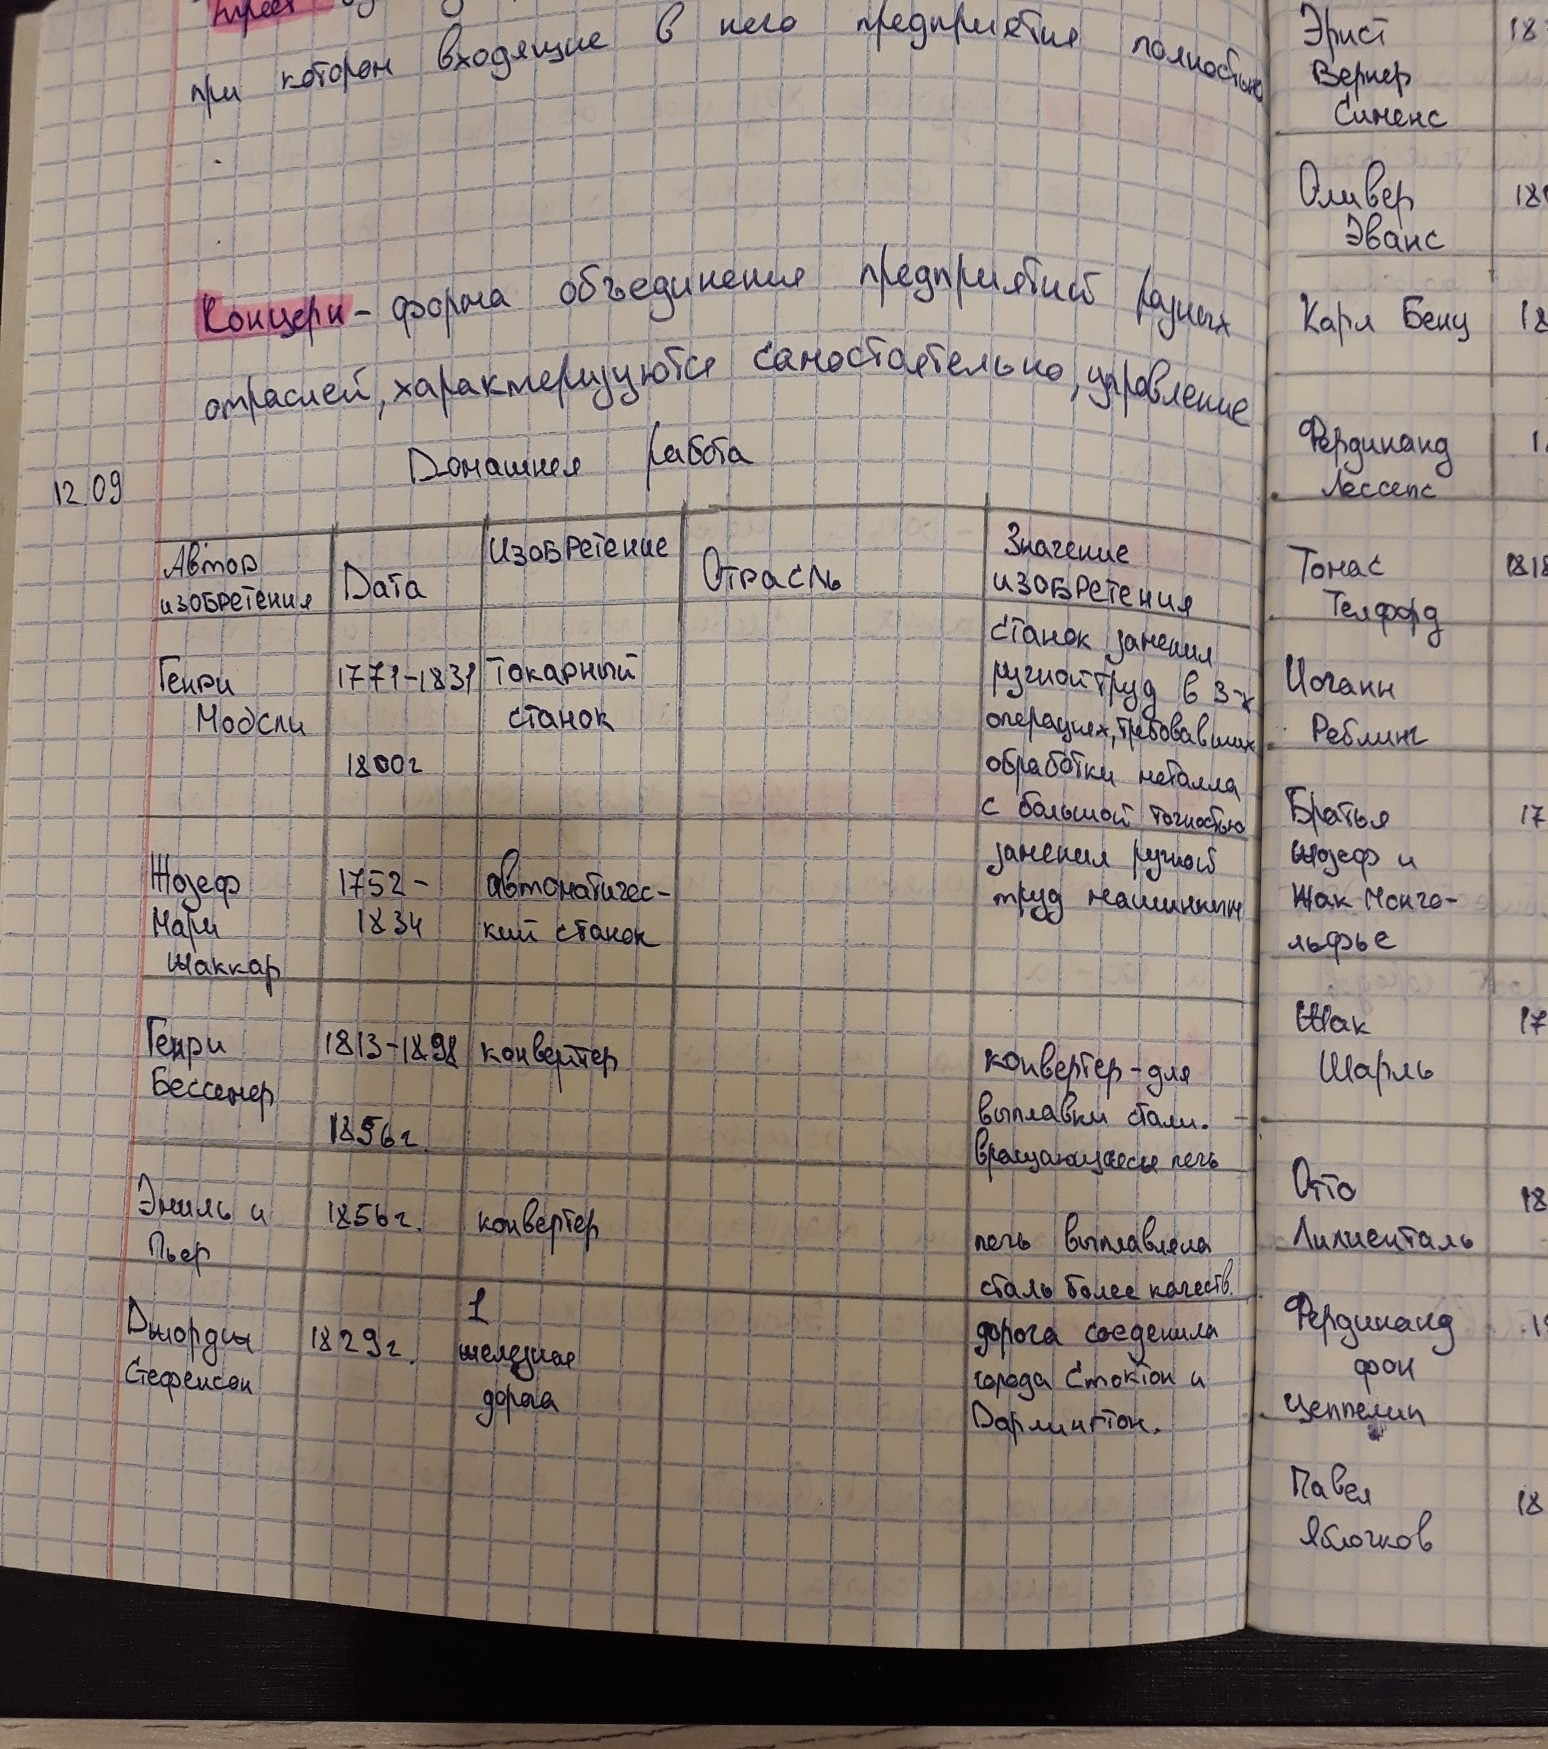 при котором входящие в него предприятия полностью
Концерн - форма объединения предприятий разных
отраслей, характеризуются самостоятельно, управление
Домашняя работа
12.09
Автор
изобретения
Дата
Изобретение
Отрасль
Значение
изобретения
Генри
Модсли
1771-1831
1800г
токарный
станок
станок заменил
ручной труд в 3-х
операциях, требовавших
обработки металла
с большой точностью
Жозеф
Мари
Жаккар
1752-
1834
автоматичес-
кий станок
заменил ручной
труд машинным
Генри
Бессемер
1813-1898
1856г.
конвертер
конвертер - для
выплавки стали.
вращающаяся печь
Эмиль и
Пьер
1856г.
конвертер
печь выплавляла
сталь более качеств.
Джордж
Стефенсон
1829г.
1
железная
дорога
дорога соеденила
города Стоктон и
Дарлингтон.
Эрнст
Вернер
Сименс
18
Оливер
Эванс
18
Карл Бенц
18
Фердинанд
Лессепс
1
Томас
Телфорд
1818
Иоганн
Реблинг
Братья
Жозеф и
Жак Монго-
льфье
17
Жак
Шарль
17
Отто
Лилиенталь
18
Фердинанд
фон
Цеппелин
19
Павел
Яблочков
18